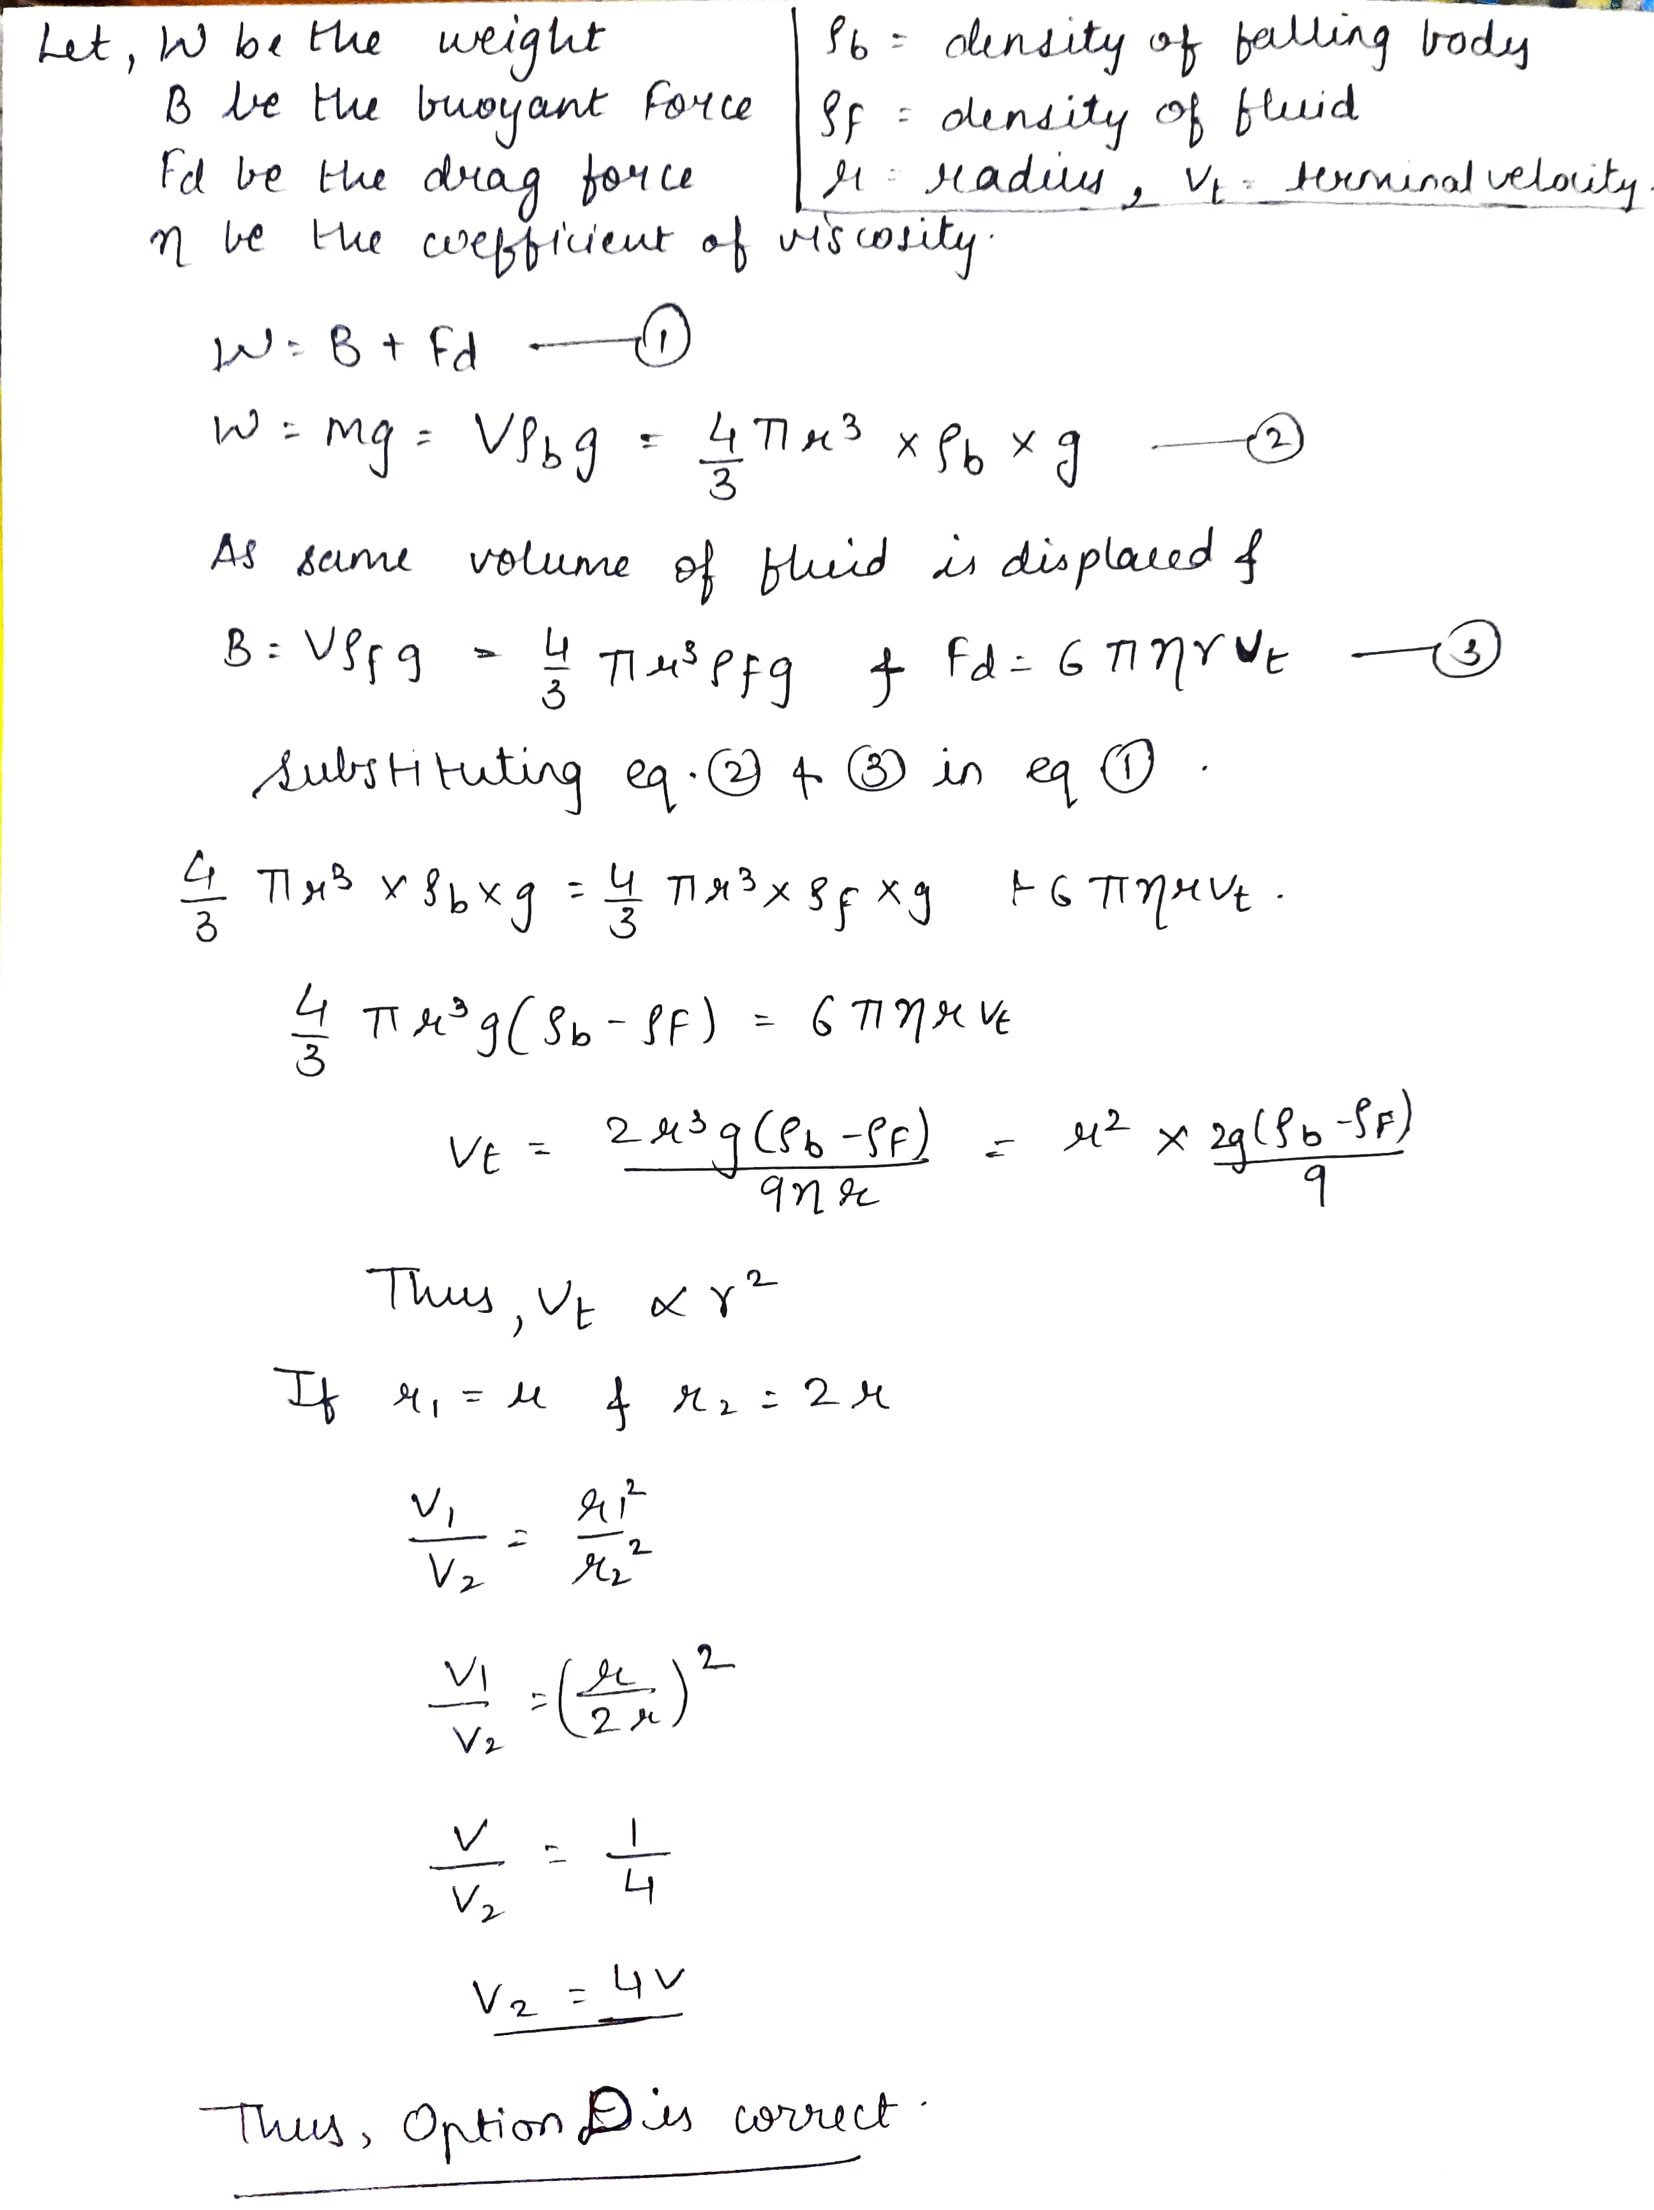 Let, W be the weight
B be the buoyant force
Fd be the drag force
η be the coefficient of viscosity.
ρb = density of falling body
ρF = density of fluid
r = radius, Vt = terminal velocity.
W = B + Fd — ①
W = mg = Vρbg = 4/3 πr³ × ρb × g — ②
As same volume of fluid is displaced &
B = Vρfg = 4/3 πr³ρFg & Fd = 6πηrVt — ③
Substituting eq. ② & ③ in eq ① .
4/3 πr³ × ρb × g = 4/3 πr³ × ρf × g + 6πηrVt .
4/3 πr³g(ρb - ρF) = 6πηrVt
Vt = 2r³g(ρb - ρF)/9ηr = r² × 2g(ρb - ρF)/9
Thus, Vt ∝ r²
If r₁ = r & r₂ = 2r
V₁/V₂ = r₁²/r₂²
V₁/V₂ = (r/2r)²
V/V₂ = 1/4
V₂ = 4V
Thus, Option D is correct.